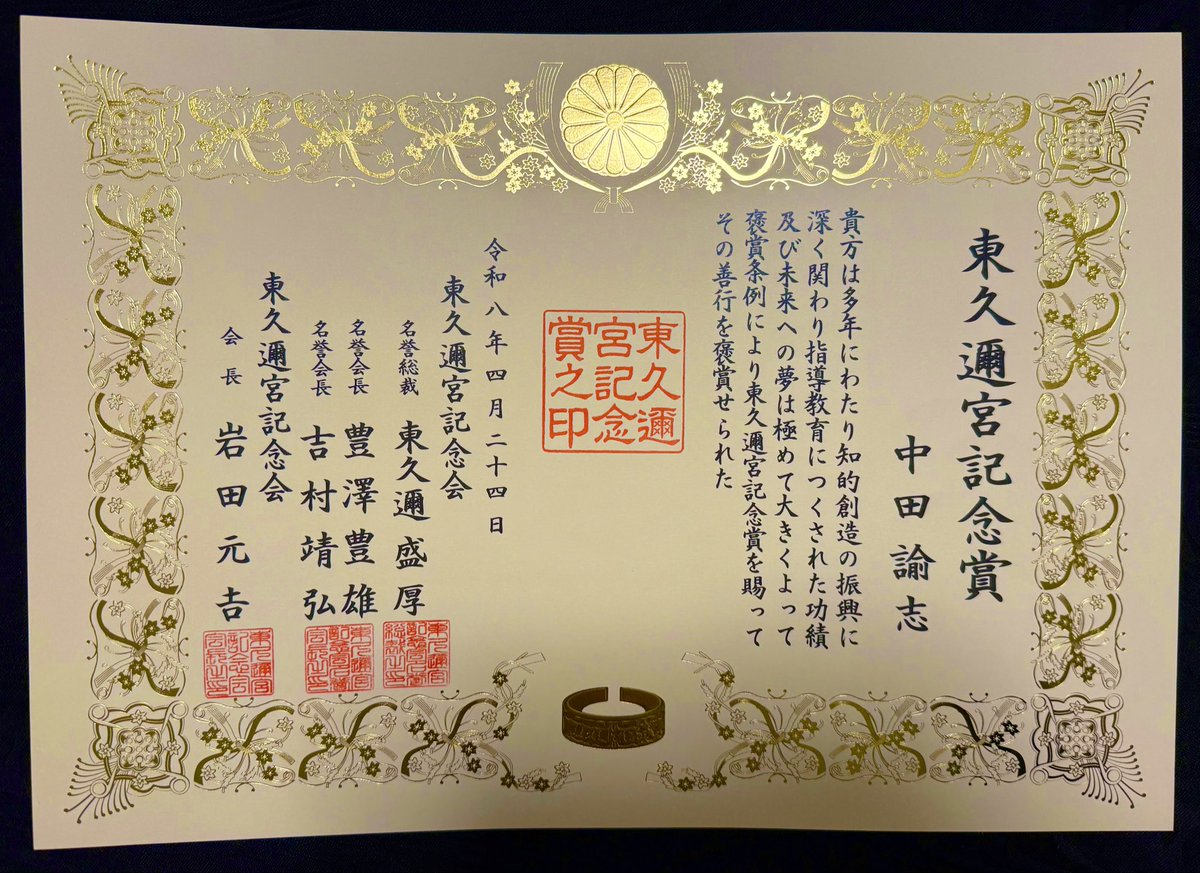 東久邇宮記念賞
中田諭志
貴方は多年にわたり知的創造の振興に
深く関わり指導教育につくされた功績
及び未来への夢は極めて大きくよって
褒賞条例により東久邇宮記念賞を賜って
その善行を褒賞せられた
東久邇
宮記念
賞之印
令和八年四月二十四日
東久邇宮記念会
名誉総裁 東久邇盛厚
名誉会長 豊澤豊雄
名誉会長 吉村靖弘
東久邇宮記念会
会長 岩田元吉